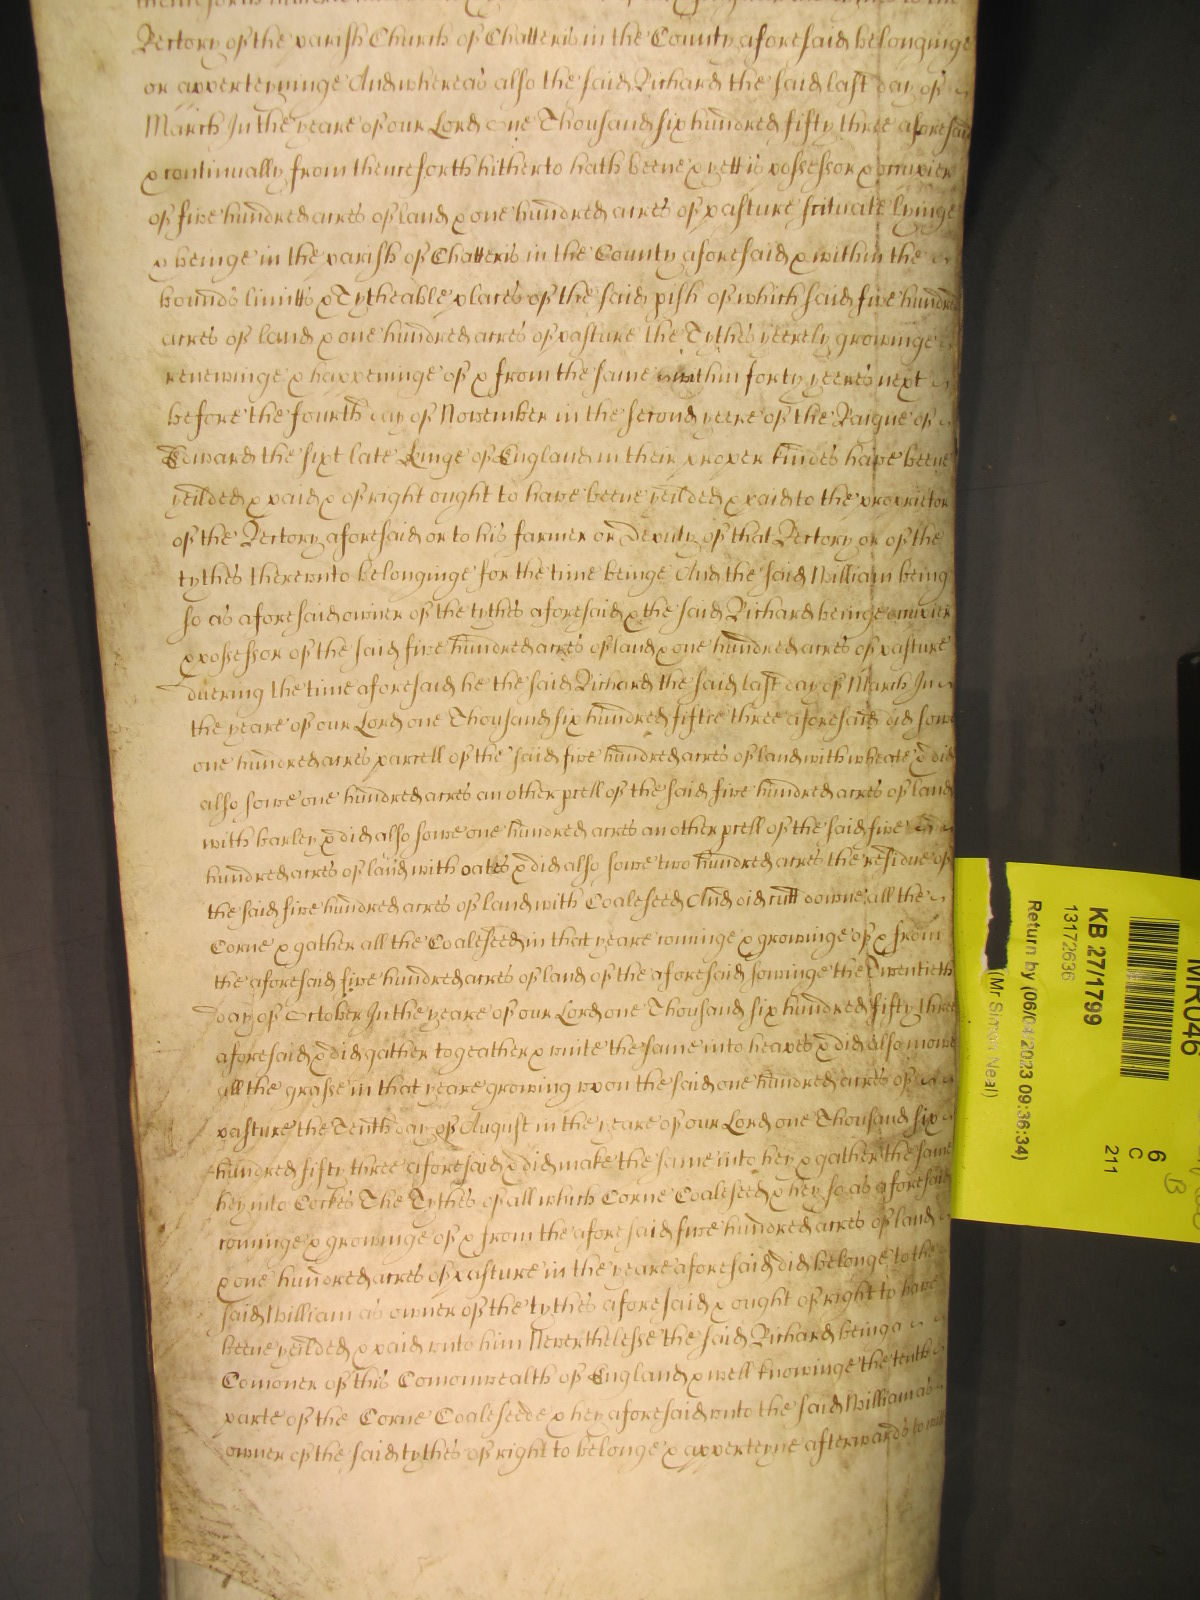 Rectory of the parish Church of Chatteris in the County aforesaid belonginge
or apperteyninge And whereas also the said Richard the said last day of
March In the yeare of our Lord one Thousand six hundred fifty three aforesaid
& continually from thenceforth hitherto hath beene & yett is possessor & occupier
of five hundred acres of land & one hundred acres of pasture scituate lyinge
& beinge in the parish of Chatteris in the County aforesaid & within the
bounds limitts & Tytheable places of the said pish of which said five hundred
acres of land & one hundred acres of pasture the Tythes yeerely growinge
renewinge & happeninge of & from the same within forty yeeres next
before the fourth day of November in the second yeere of the Raigne of
Edward the sixt late Kinge of England in their proper kindes have beene
yeilded & paid & of right ought to have beene yeilded & paid to the proprietor
of the Rectory aforesaid or to his farmer or Deputy of that Rectory or of the
tythes thereunto belonginge for the time beinge And the said William being
so as aforesaid owner of the tythes aforesaid & the said Richard beinge occupier
& possessor of the said five hundred acres of land & one hundred acres of pasture
duering the time aforesaid he the said Richard the said last day of March In
the yeare of our Lord one Thousand six hundred fiftie three aforesaid did sowe
one hundred acres parcell of the said five hundred acres of land with wheate & did
also sowe one hundred acres an other pcell of the said five hundred acres of land
with barley & did also sowe one hundred acres an other pcell of the said five
hundred acres of land with oates & did also sowe two hundred acres the residue of
the said five hundred acres of land with Coaleseed And did cutt downe all the
Corne & gather all the Coaleseed in that yeare cominge & growinge of & from
the aforesaid five hundred acres of land of the aforesaid sowinge the Twentieth
day of October In the yeare of our Lord one Thousand six hundred fifty three
aforesaid & did gather togeather & unite the same into heapes & did also mowe
all the grasse in that yeare growing upon the said one hundred acres of
pasture the Tenth day of August in the yeare of our Lord one Thousand six
hundred fifty three aforesaid & did make the same into hey & gather the same
hey into Cockes The Tythes of all which Corne Coaleseed & hey so as aforesaid
cominge & growinge of & from the aforesaid five hundred acres of land
& one hundred acres of pasture in the yeare aforesaid did belonge to the
said William as owner of the tythes aforesaid & ought of right to have
beene yeilded & paid unto him Neverthelesse the said Richard being a
Comoner of this Comonwealth of England & well knowinge the tenth
parte of the Corne Coaleseede & hey aforesaid unto the said William as
owner of the said tythes of right to belonge & apperteyne afterwards to witt
MR046
KB 27/1799
13172636
Return by (06/04/2023 09:36:34)
(Mr Simon Neal)
6
C
211
B